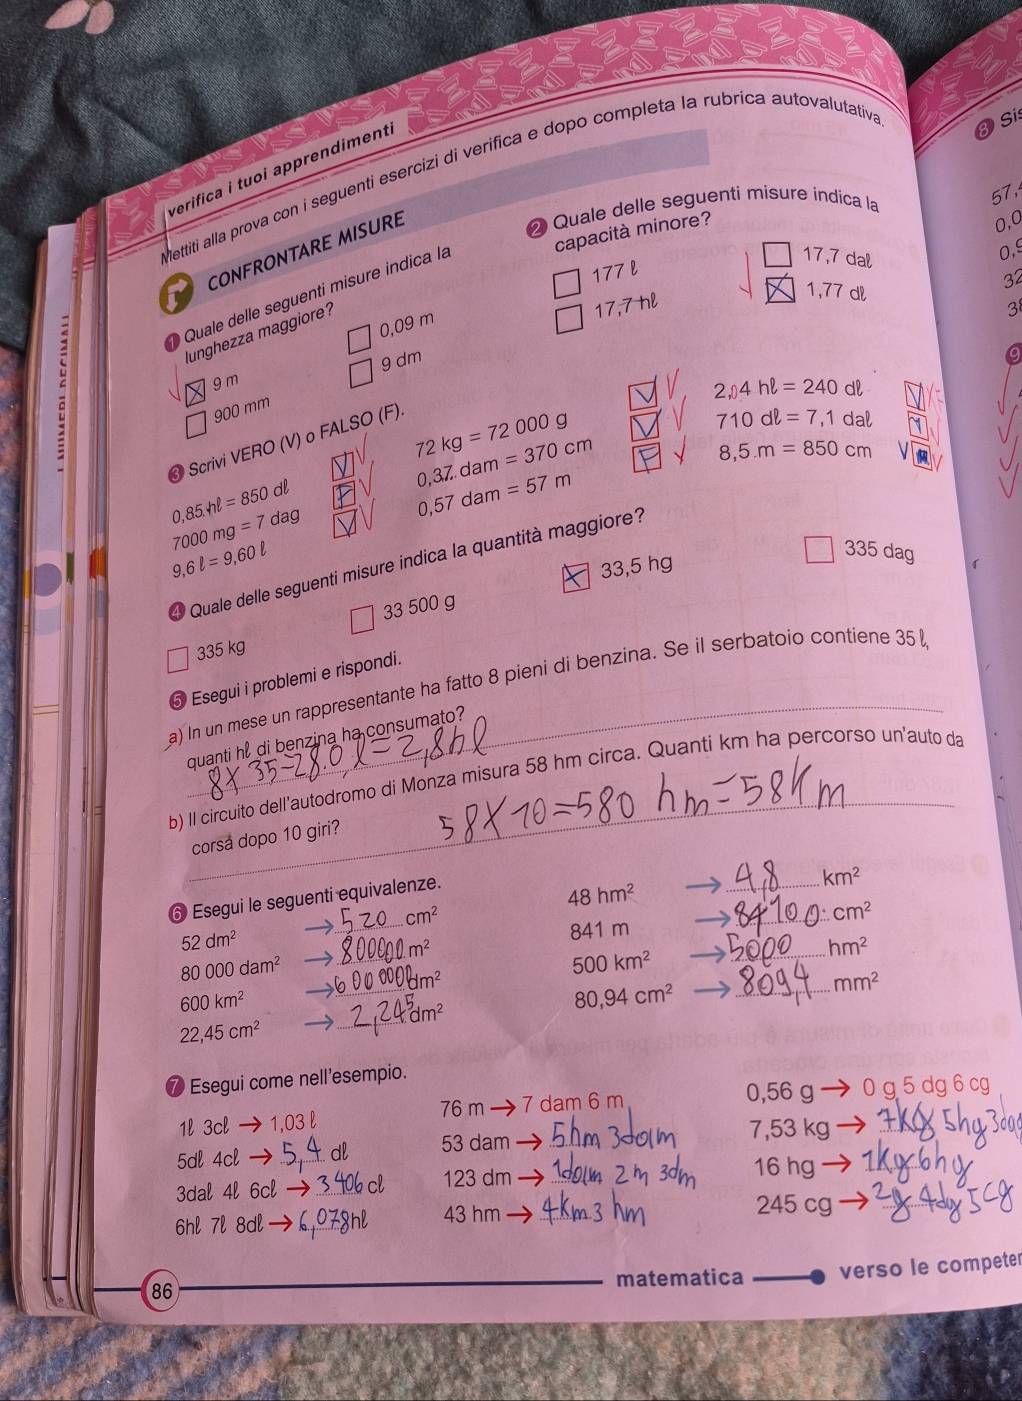 verifica i tuoi apprendimenti
Mettiti alla prova con i seguenti esercizi di verifica e dopo completa la rubrica autovalutativa.
CONFRONTARE MISURE
1 Quale delle seguenti misure indica la
lunghezza maggiore?
9 m
0,09 m
900 mm
9 dm
2 Quale delle seguenti misure indica la
capacità minore?
177 ℓ
17,7 daℓ
17,7 hℓ
1,77 dℓ
3 Scrivi VERO (V) o FALSO (F).
0,85 hℓ = 850 dℓ V
72 kg = 72 000 g V
2,04 hℓ = 240 dℓ V
7000 mg = 7 dag F
0,37 dam = 370 cm V
710 dℓ = 7,1 daℓ
9,6 ℓ = 9,60 ℓ V
0,57 dam = 57 m F
8,5 m = 850 cm V
4 Quale delle seguenti misure indica la quantità maggiore?
335 kg
33 500 g
33,5 hg
335 dag
5 Esegui i problemi e rispondi.
a) In un mese un rappresentante ha fatto 8 pieni di benzina. Se il serbatoio contiene 35 ℓ,
quanti hℓ di benzina ha consumato?
8 x 35 = 28.0 ℓ = 2,8 hℓ
b) Il circuito dell'autodromo di Monza misura 58 hm circa. Quanti km ha percorso un'auto da
corsa dopo 10 giri?
58 x 10 = 580 hm = 58 Km
6 Esegui le seguenti equivalenze.
52 dm² → 520 cm²
48 hm² → 4,8 km²
80 000 dam² → 800000 m²
841 m → 84100 cm²
600 km² → 600 000 dm²
500 km² → 5000 hm²
22,45 cm² → 2,245 dm²
80,94 cm² → 809,4 mm²
7 Esegui come nell'esempio.
1ℓ 3cℓ → 1,03 ℓ
76 m → 7 dam 6 m
0,56 g → 0 g 5 dg 6 cg
5dℓ 4cℓ → 5,4 dℓ
53 dam → 5hm 3dam
7,53 kg → 7kg 5hg 3dag
3daℓ 4ℓ 6cℓ → 3406 cℓ
123 dm → 1dam 2m 3dm
16 hg → 1kg 6hg
6hℓ 7ℓ 8dℓ → 6,078 hℓ
43 hm → 4km 3 hm
245 cg → 2g 4dg 5cg
86
matematica
verso le competen
8 Sis
57,4
0,0
0,9
32
38
9